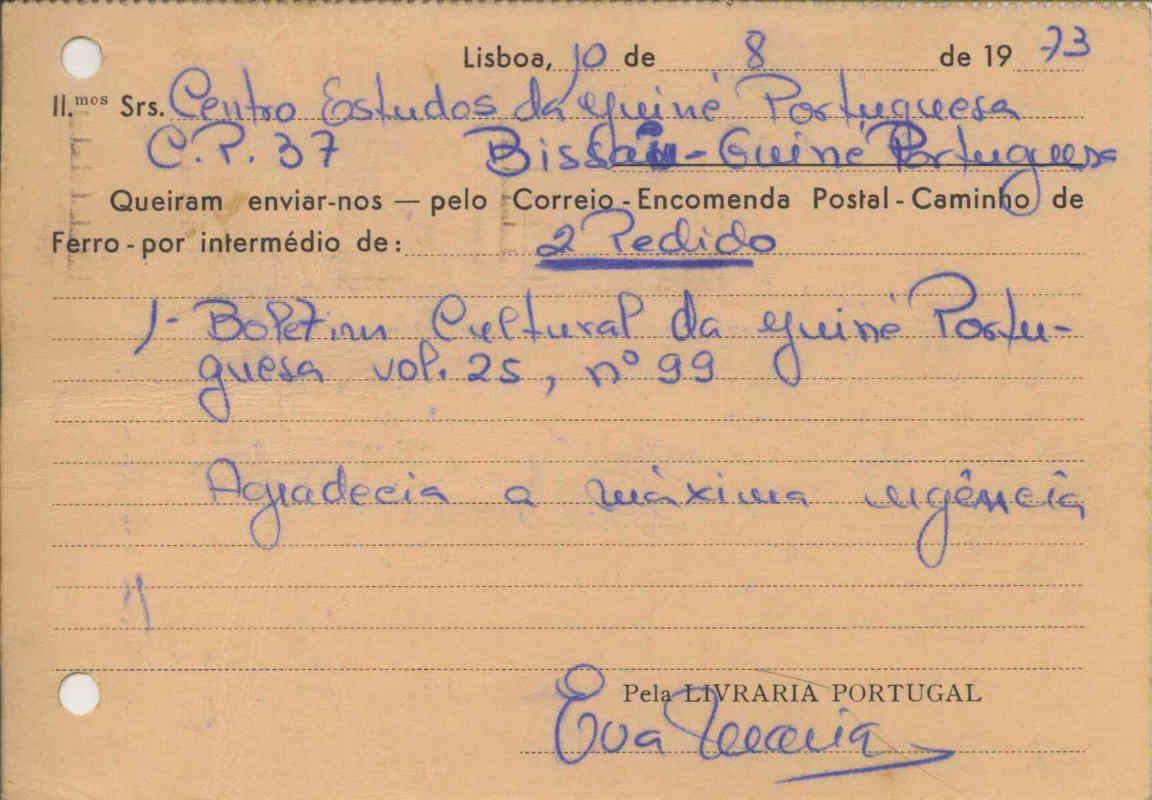 Lisboa, 10 de 8 de 19 73
Il.mos Srs. Centro Estudos da Guiné Portuguesa
C.P. 37 Bissau - Guiné Portuguesa
Queiram enviar-nos — pelo Correio - Encomenda Postal - Caminho de
Ferro - por intermédio de: 2 Pedido
1- Boletim Cultural da Guiné Portu-
guesa vol. 25, nº 99
Agradecia a máxima urgência
Pela LIVRARIA PORTUGAL
Eva Maria